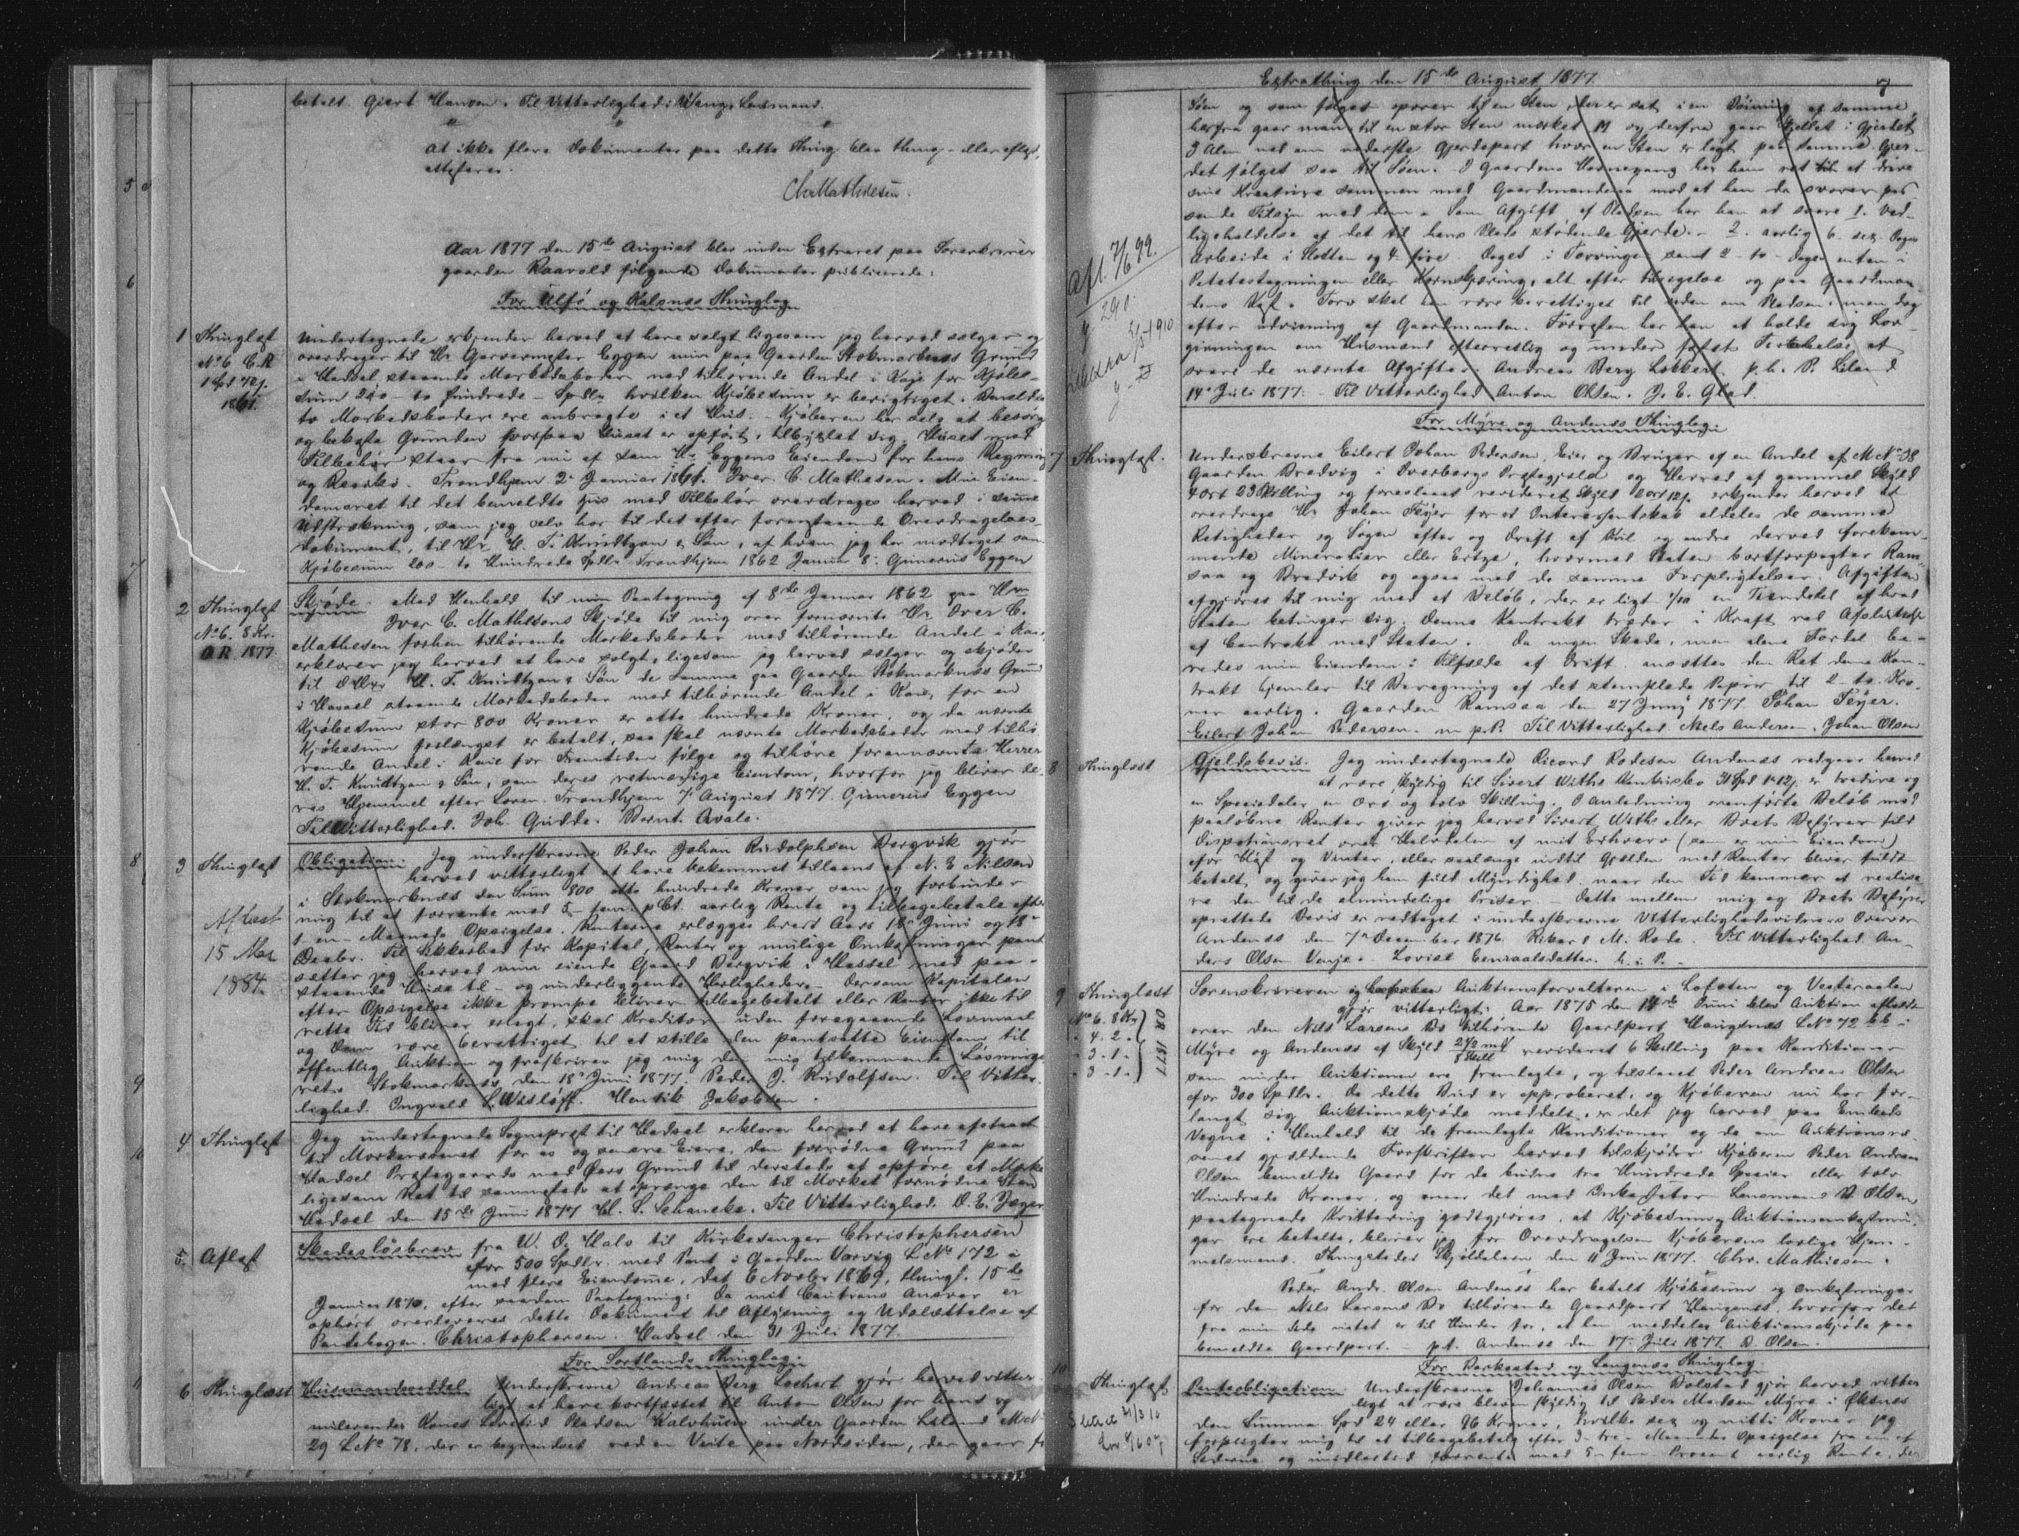 betalt. Giert Hansen. Til Vitterlighed: Wang, Lensmand.
At ikke flere Dokumenter paa dette Thing blev thing- eller aflæst,
attesteres.
Chr Mathiesen.
Aar 1877 den 15de August blev under Extraret paa Sorenskriver
gaarden Raavold følgende Dokumenter publicerede:
For Ulfø og Kalsnes Thinglag
1 Thinglæst
No 6 C.R
1 Spd 72 s.
1861.
Undertegnede erkjender herved at have solgt ligesom jeg herved sælger og
overdrager til Hr Garvermester Eggen min paa Gaarden Stokmarknes Grund
i Hadsel staaende Markedsboder med tilhørende Andel i Kaje for Kjøbe-
sum 200 - to hundrede - Spdlr hvilken Kjøbesum er berigtiget. Anmeldte
to Markedsboder ere anbragte i et Hus. Kjøberen har selv at besørge
og bekoste Grunden hvorpaa Huset er opført, tilbyxlet sig. Huset med
Tilbehør staar fra nu af som Hr. Eggens Eiendom for hans Regning
og Risiko. Trondhjem 2 Januar 1861. Iver C. Mathesen. Min Eien-
domsret til det bemeldte Hus med Tilbehør overdrages herved i samme
Udstrækning, som jeg selv har til det efter foranstaaende Overdragelses-
dokument, til Hr. H. T. Knudtzon & Søn, af hvem jeg har modtaget som
Kjøbesum 200 - to Hundrede Spdlr Trondhjem 1862 Januar 8. Gunerius Eggen
2 Thinglæst
No 6. 8 Kr.
O.R. 1877.
Skjøde. Med Henhold til min Paategning af 8de Januar 1862 paa Hr
Iver C. Mathesons Skjøde til mig over fornævnte Hr Iver C.
Mathesen forhen tilhørende Markedsboder med tilhørende Andel i Kaie,
erklærer jeg herved at have solgt, ligesom jeg herved sælger og skjøder
til d'Hrr H. T. Knudtzon & Søn de samme paa Gaarden Stokmarknes Grund
i Hassel staaende Markedsboder med tilhørende Andel i Kaie, for en
Kjøbesum stor 800 Kroner er otte hundrede Kroner, og da nævnte
Kjøbesum forlængst er betalt, saa skal nævnte Markedsboder med tilhø
rende Andel i Kaie for Fremtiden følge og tilhøre forannævnte Herrer
H. T. Knudtzon & Søn, som deres retmæssige Eiendom, hvorfor jeg bliver de-
res Hjemmel efter Loven. Trondhjem 7 August 1877. Gunerius Eggen
Til Vitterlighed. Joh. Gudde. Bernt Avale.
3 Thinglæst
Aflæst
15 Mai
1884
Obligation. Jeg underskrevne Peder Johan Rudolphsen Bergvik gjør
herved vitterligt at have bekommet tillaans af N. E. Nilsen
i Stokmarknes den Sum 800 otte hundrede Kroner, som jeg forbinder
mig til at forrente med 5 - fem - pCt. aarlig Rente og tilbagebetale efter
1 en - Maaneds Opsigelse. Renterne erlægges hvert Aars 18 Juni og 18
Decbr. Til Sikkerhed for Kapital, Renter og mulige Omkostninger pant-
sætter jeg herved min eiende Gaard Bergvik i Hassel med paa-
staaende Huse til- og underliggende Herligheder. Dersom Kapitalen
efter Opsigelse ikke prompte bliver tilbagebetalt eller Renter ikke til
rette Tid bliver erlagt, skal Kreditor uden foregaaende Lovmaal
og Dom være berettiget til at stille den pantsatte Eiendom til
offentlig Auktion og fraskriver jeg mig den mig tilkommende Løsnings-
ret. Stokmarknes den 18 Juni 1877. Peder J. Rudolfsen. Til Vitter-
lighed. Ingvald L. Wisløff. Henrik Jakobsen.
4 Thinglæst
Jeg undertegnede Sognepræst til Hadsel erklærer herved at have afstaaet
til Morkersdenet for os og senere Eiere, den fornødne Grund paa
Hadsel Præstegaards med Øers Grund til dersteds at opføre et Mærke
ligesom Ret til sammesteds at oprænge den til Mærket fornødne Sten
Hadsel den 15de Juni 1877 H. S. Schancke. Til Vitterlighed. O. E. Jæger
5. Aflæst
Skadesløsbrev fra W. D. Hals til Kirkesanger Christophersen
for 500 Spdlr. med Pant i Gaarden Varvig LNo 172 a
med flere Eiendomme, dat 6 Novbr 1869, thingl. 15de
Januar 1870, efter saadan Paategning: Da mit Cautions Ansvar er
ophørt overleveres dette Dokument til Aflysning og Udslættelse af
Pantebogen. Christophersen. Hadsel den 31 Juli 1877.
For Sortlands Thinglag.
6 Thinglæst
Husmandsseddel. Underskrevne Andreas Berg Lockert gjør herved vitter-
ligt at have bortfæstet til Anton Olsen for hans og
nulevende Kones Levetid Pladsen Halvhusu under Gaarden Liland MatNo
29 LNo 78, der er begrændset ved en Veite paa Nordsiden, der gaar fr
Extrathing den 15de August 1877.
7
Søen og som følges opover til en Sten, der er sat i en Bøining af samme
herfra gaar man til en stor Sten mærket M og derfra gaar Skjellet i Gjerdet
3 Alen ned om nederste Gjerdeport hvor en Sten er lagt paa samme Gjer-
det følges saa til Søen. I Gaardens Havnegang har han ret til at drive
sine Kreature sammen med Gaardmandens mod at han da svarer pas
sende Tilsyn med dem. Som Afgift af Pladsen har han at svare 1. Ved-
ligeholdelse af det til hans Plads stødende Gjerde. 2. aarlig 6 sex Dages
Arbeide i Slotten og 4 fire - Dages i Torvingen samt 2 - to - Dage enten i
Potetestagningen eller Kornskjæring, alt efter tilsigelse og paa Gaardman-
dens Kost. Torv skal han være berettiget til uden om Pladsen, men dog
efter udvisning af Gaardmanden. Forøvrigt har han at holde sig Lov-
givningen om Husmænd efterrettelig og under fortsat Forholdelse at
svare de nævnte Afgifter. Andreas Berg Lokkert. p.h. P. Liland
14 Juli 1877: Til Vitterlighed Anton Olsen. J. E. Glad.
Afl. 7/6 99.
291
For Myre og Andenes Thinglag.
7 Thinglæst.
Underskrevne Eilert Johan Pedersen, Eier og Bruger af en Andel af M No 38
Gaarden Bredvig i Dverbergs Præstegjeld og Herred af gammel Skyld
4 ort 23 Skilling og foreslaaet revideret Skyld 2 ort 12 s. erkjender herved at
overdrage Hr. Johan Feyer for et Interessentskab aldeles de samme
Rettigheder og Søgen efter og Drift af Kul og andre derved forekom-
mende Mineralier eller Ertze, hvormed Staten bortforpagter Ram-
saa og Bredvik og ogsaa med de samme Forpligtelser. Afgiften
afgjøres til mig med et Beløb, der er ligt 1/10 en Tiendedel af hvad
Staten betinger sig. Denne Kontrakt træder i Kraft ved Afsluttelse
af Contrakt med Staten. Da ingen Skade, men alene Fordel be-
redes min Eiendom i Tilfælde af Drift ansættes den Ret denne Kon-
trakt hjemler til Beregning af det stemplede Papir til 2 - to Kro-
ner aarlig. Gaarden Ramsaa den 27 Juni 1877. Johan Feyer.
Eilert Johan Pedersen. m.p.P. Til Vitterlighed Niels Andersen. Johan Olsen
8 Thinglæst
Gjeldsbevis. Jeg undertegnede Ricard Rodesen Andenes vedgaar herved
at være skyldig til Sivert Withs Enkesbo 31 Spd 1-12 s. er tredive og
en Speciedaler en Ort og tolv Skilling. I Anledning ovenførte Beløb med
paaløbne Renter giver jeg herved Sivert Withs eller Boets Bestyrer fuld
Dispositionsret over Halvdelen af mit Erhverv (som er min Eiendom)
efter Høst og Vinter, eller saalænge indtil Gjælden med Renter bliver fuldt
betalt, og giver jeg ham fuld Myndighed, naar den Tid kommer at realise
re den til de almindelige Priser. Dette mellem mig og Boets Bestyrer
oprettede Bevis er vedtaget i underskrevne Vitterlighedsvidners Overvær
Andenes den 7 December 1876. Rikard M. Rode. Til Vitterlighed An-
ders Olsen Venje. Lovise Conraalsdatter. h.i.P.
9 Thinglæst
No 6. 8 Kr
" 4. 2 "
" 3. 1 "
" 3 - 1 "
O R 1877
Sorenskriveren og Auktionsforvalteren i Lofoten og Vesteraalen
gjør vitterligt: Aar 1875 den 14de Juni blev Auktion afholdt
over den Nils Larsens Bo tilhørende Gaardpart Haugnes LNo 72 bb i
Myre og Andenes af Skyld revideret 6 Skilling paa Konditioner
som under Auktionen ere fremlagte, og tilslaaet Peder Andreas Olsen
for 300 Spdlr. Da dette Bud er approberet, og Kjøberen nu har for-
langt sig Auktionsskjøde meddelt, er det jeg herved paa Embeds
Vegne i Henhold til de fremlagte Konditioner og de om Auktionsvæ-
senet gjældende Forskrifter herved tilskjøder Kjøberen Peder Andreas
Olsen bemeldte Gaard for de budne tre Hundrede Specier eller tolv
Hundrede Kroner, og anser det med Inkassator Lensmand D. Olsen
paategnede Kvittering godtgjøres, at Kjøbesum og Auktionsomkostnin-
ger ere betalte, bliver jeg for Overdragelsen Kjøberens lovlige Hjem-
melsmand. Thingstedet Skjoldalen den 11 Juni 1877. Chr. Mathiesen.
Peder Andr. Olsen Andenes har betalt Kjøbesum og Omkostninger
for den Nils Larsens Bo tilhørende Gaardpart Haugnes, hvorfor det
fra min Side intet er til Hinder for, at han meddeles Auktionsskjøde paa
bemeldte Gaardpart. p.t. Andenes den 17 Juli 1877. D. Olsen.
For Barkestad og Langenes Thinglag.
10 Thinglæst
Panteobligation. Underskrevne Johannes Olsen Bolstad gjør herved vitter
ligt at være bleven skyldig til Peder Madsen Myre i Øksnes
den Summa Spd 24 eller 96 Kroner, hvilke sex og nitti Kroner jeg
forpligter mig til at tilbagebetale efter 3 - tre - Maaneders Opsigelse fra en af
Siderne og imidlertid forrente med 5 - fem Procent aarlig Rente, der